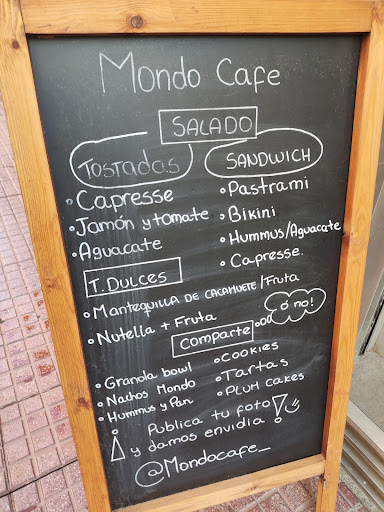 Mondo Cafe
SALADO
TOSTADAS
SANDWICH
• Capresse
• Jamón y tomate
• Aguacate
• Pastrami
• Bikini
• Hummus/Aguacate
• Capresse.
T. DULCES
• MANTEQUILLA DE CACAHUETE/Fruta
• Nutella + Fruta
Comparte
ó no!
• Granola bowl
• Nachos Mondo
• Hummus y Pan
• COOKIES
• Tartas
• PLUM CAKES
¡ Publica tu foto !
y damos envidia
@Mondocafe_